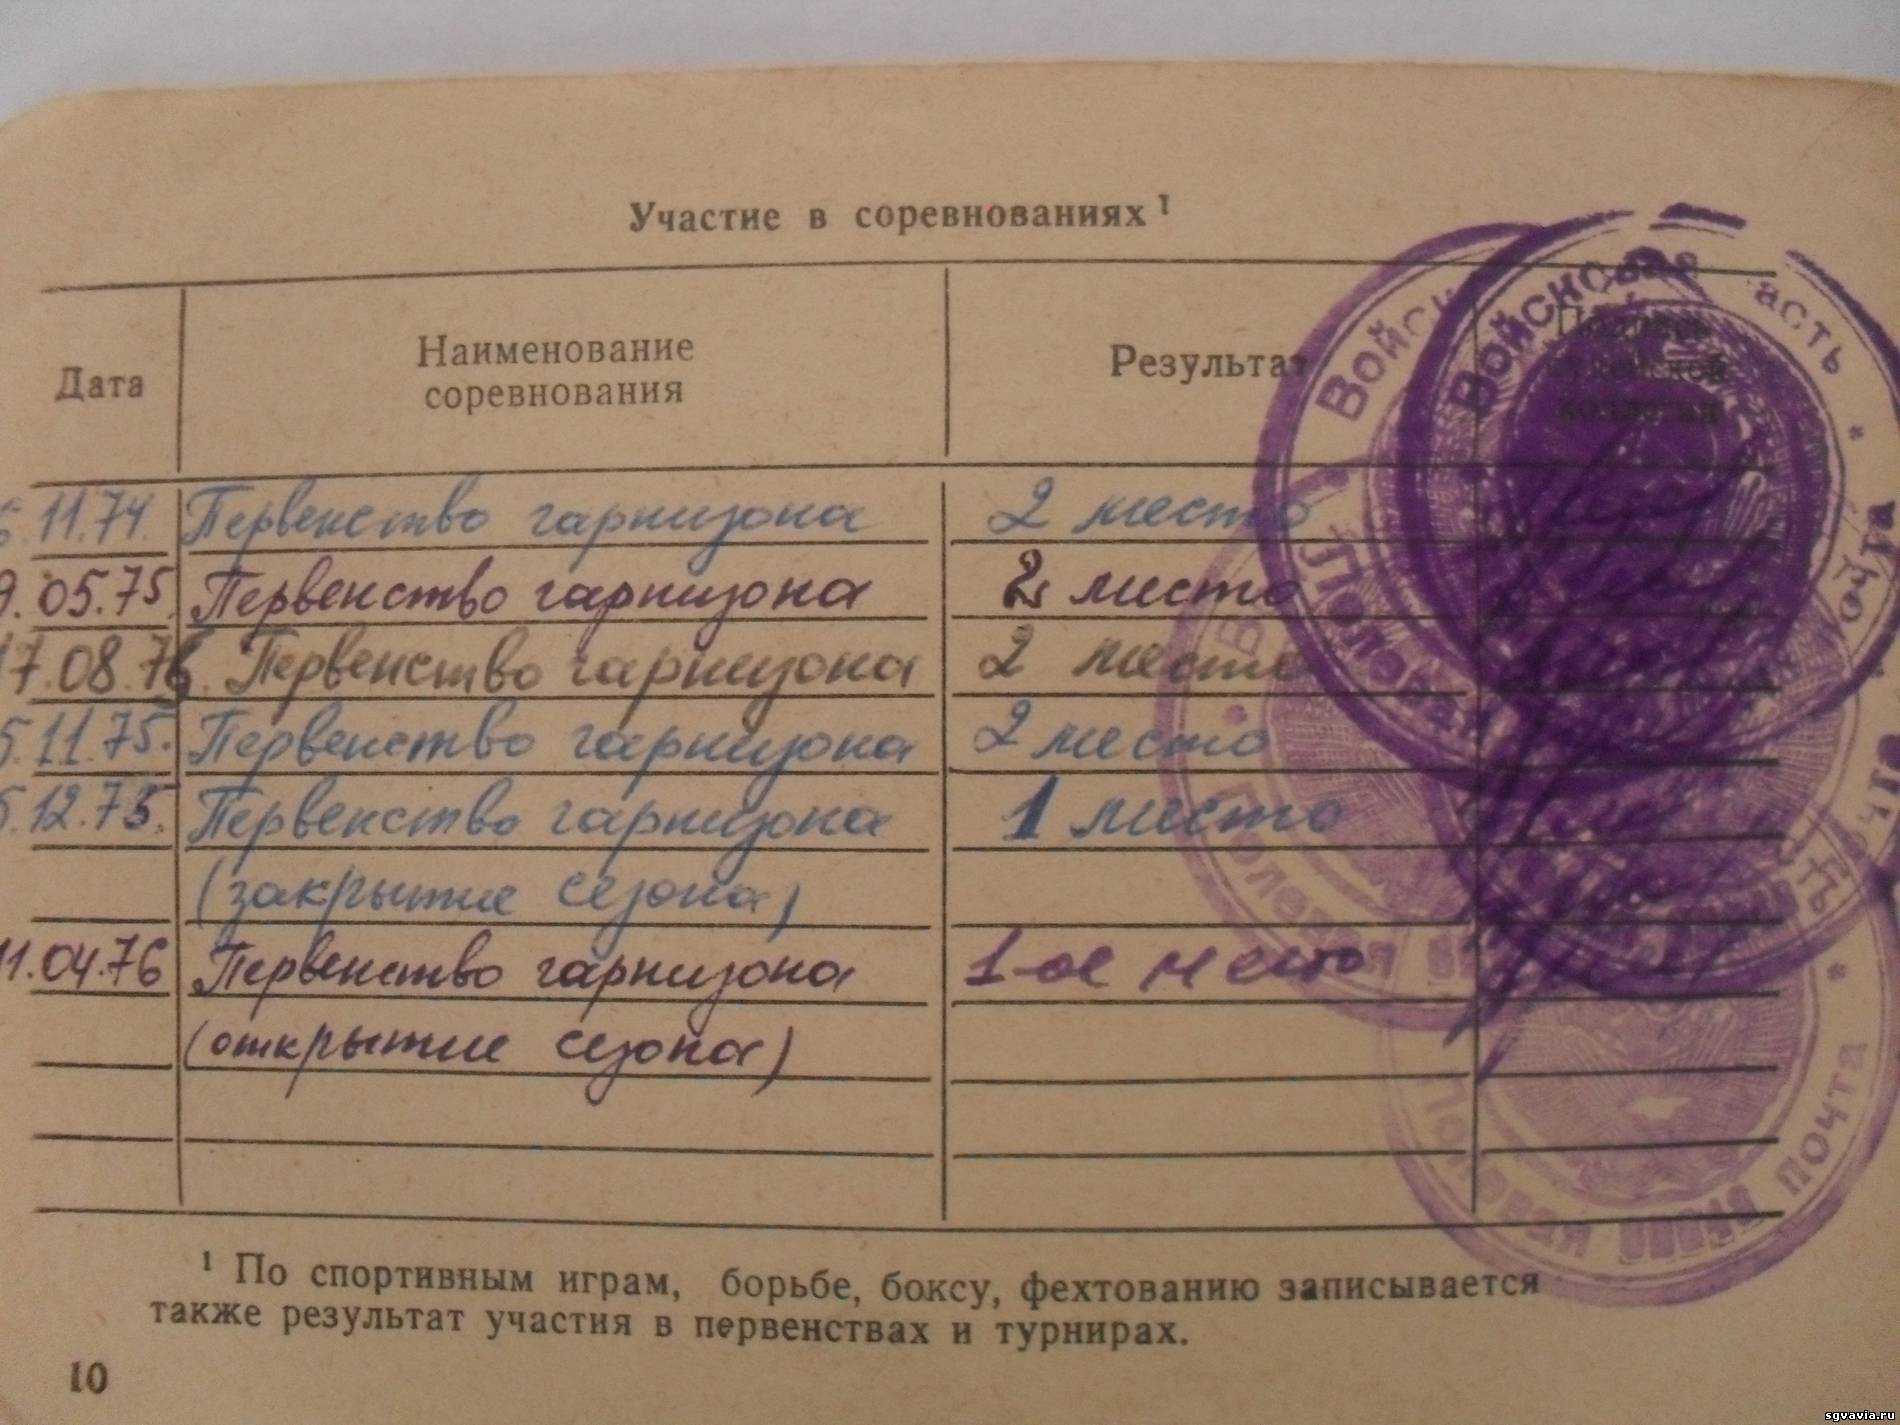 Участие в соревнованиях ¹
Дата Наименование соревнования Результат Подпись судейской коллегии
11.74. Первенство гарнизона 2 место
9.05.75. Первенство гарнизона 2 место
17.08.75. Первенство гарнизона 2 место
5.11.75. Первенство гарнизона 2 место
5.12.75. Первенство гарнизона 1 место
(закрытие сезона)
11.04.76 Первенство гарнизона 1-ое место
(открытие сезона)
Войсковая часть * Полевая почта *
Полевая почта
¹ По спортивным играм, борьбе, боксу, фехтованию записывается
также результат участия в первенствах и турнирах.
10
sgvavia.ru